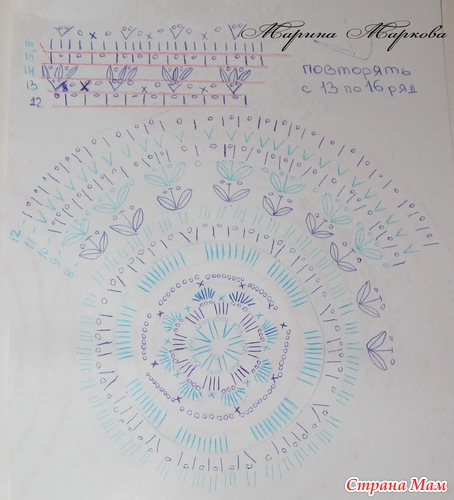 Марина Маркова
16
15
14
13
12
повторять
с 13 по 16 ряд
12
Страна Мам